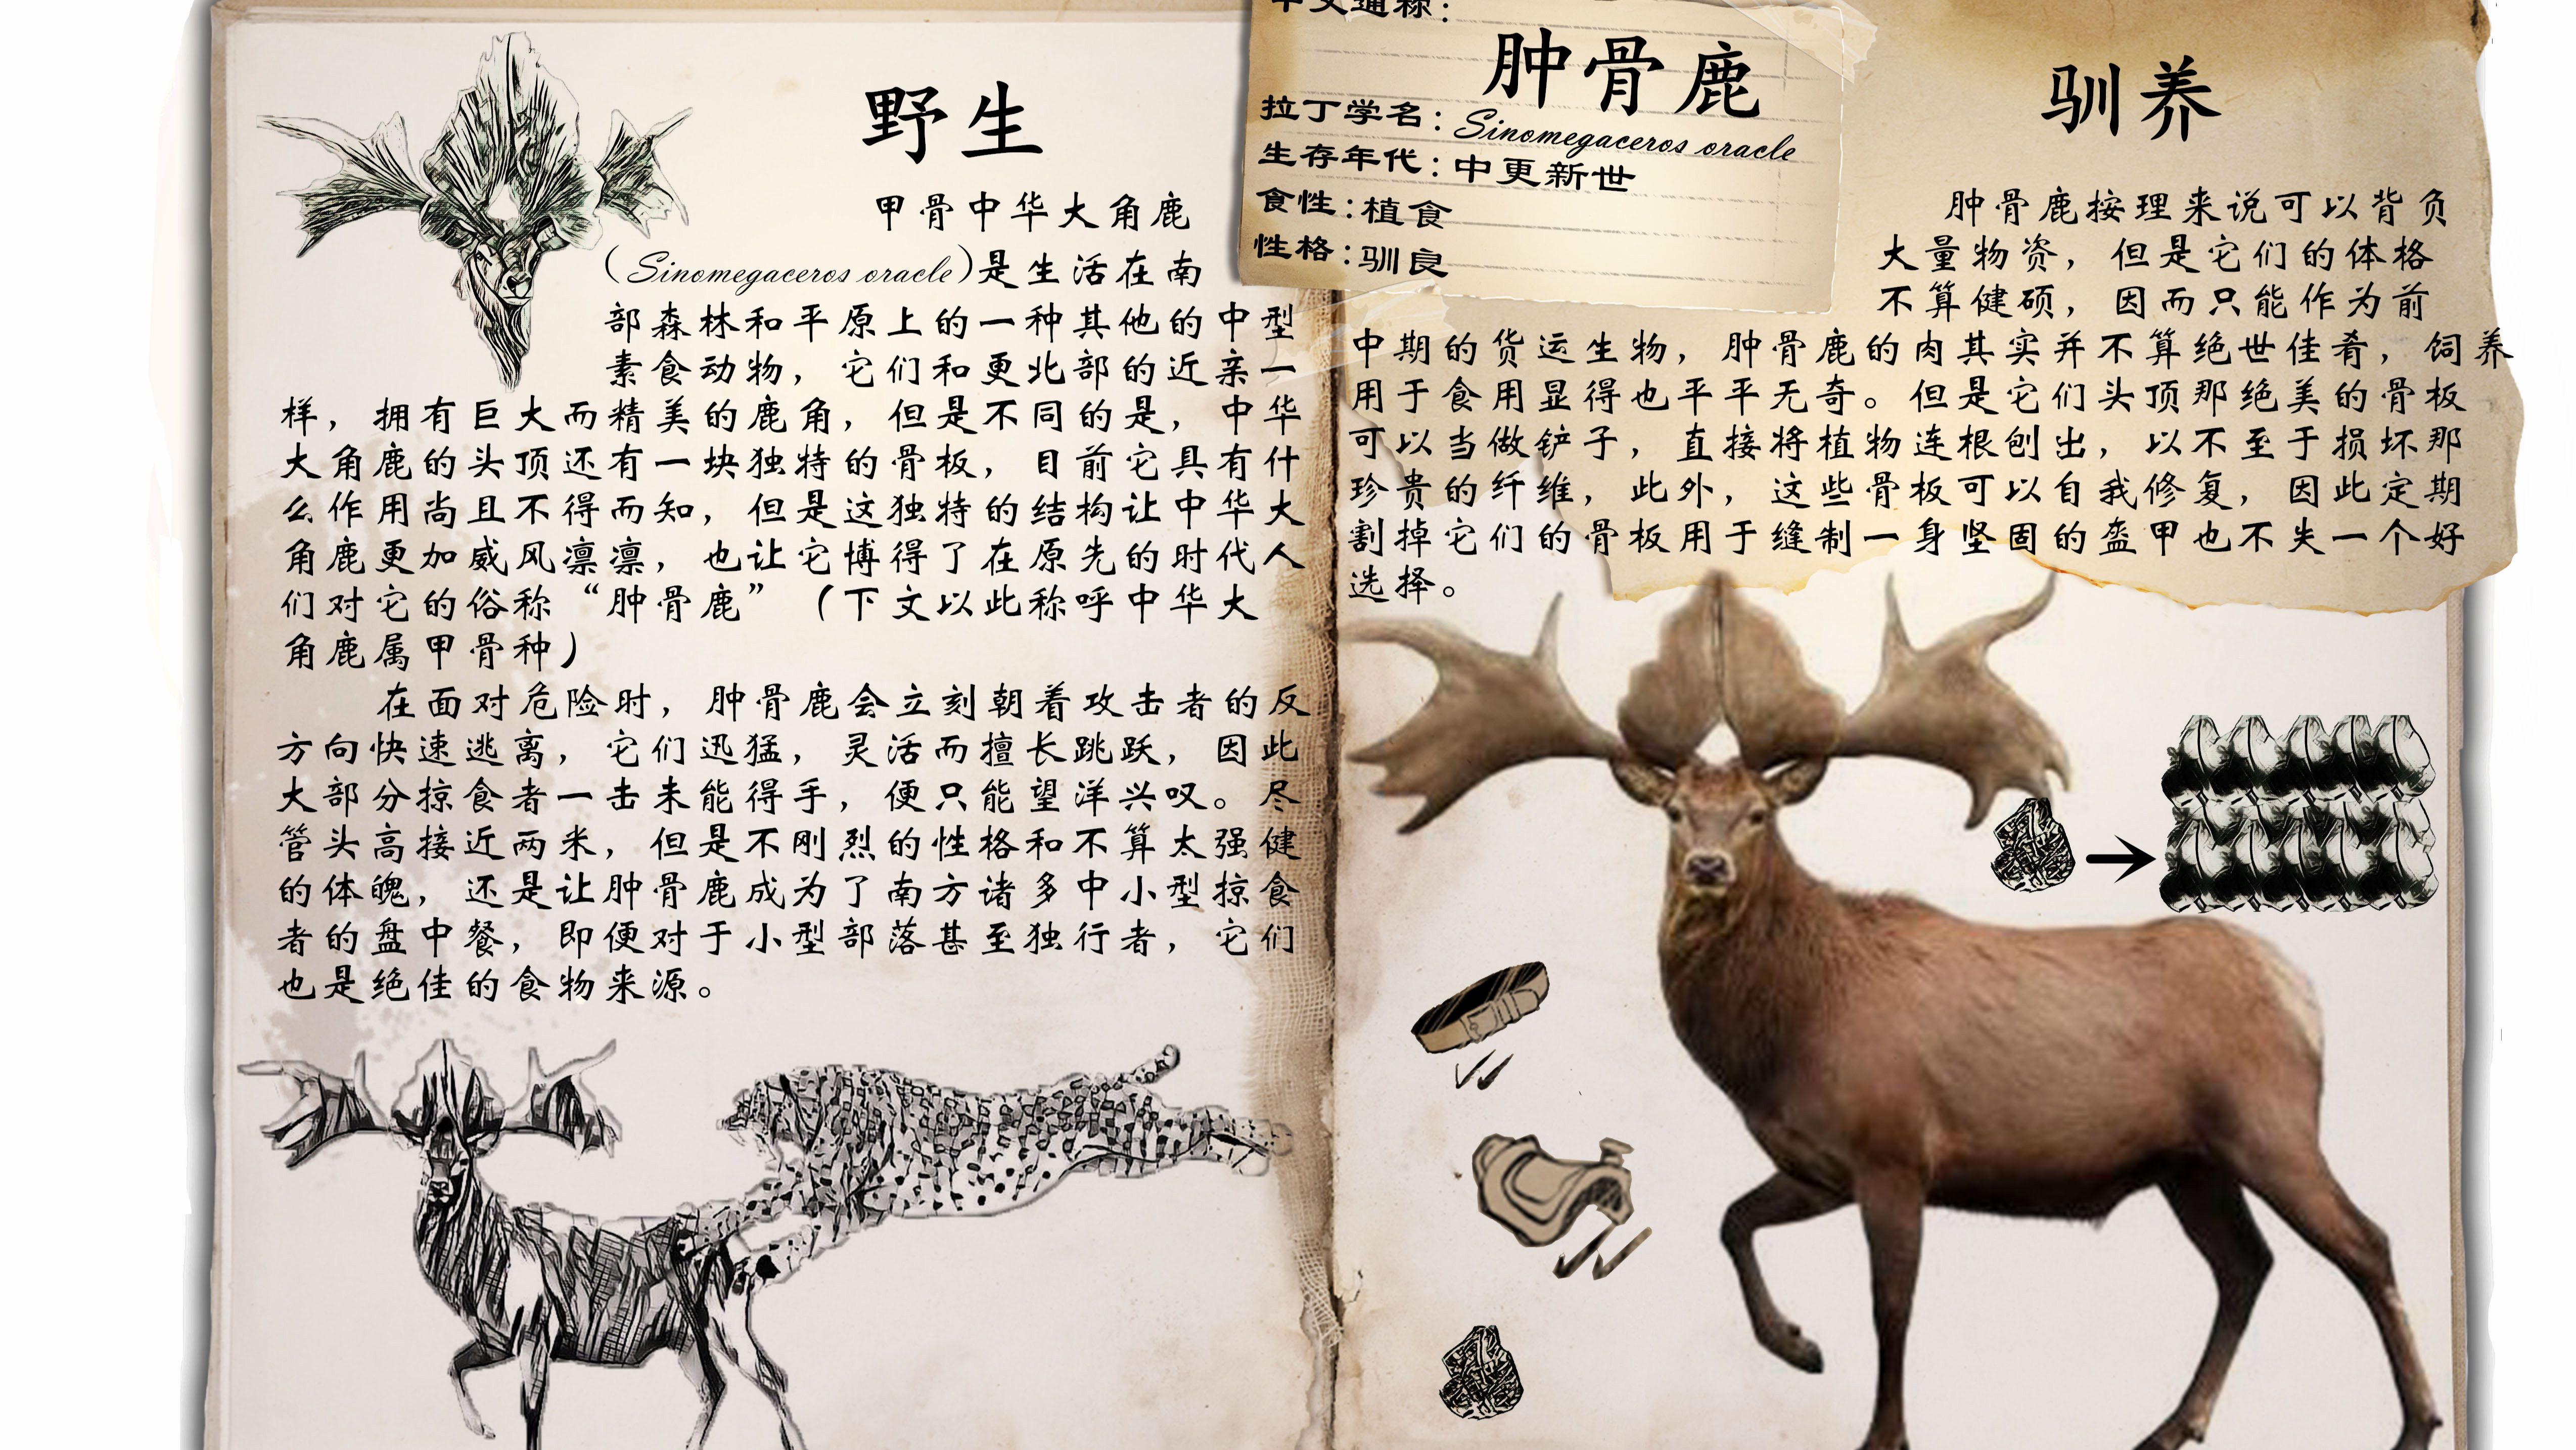 野生
甲骨中华大角鹿
（Sinomegaceros oracle）是生活在南
部森林和平原上的一种其他的中型
素食动物，它们和更北部的近亲一
样，拥有巨大而精美的鹿角，但是不同的是，中华
大角鹿的头顶还有一块独特的骨板，目前它具有什
么作用尚且不得而知，但是这独特的结构让中华大
角鹿更加威风凛凛，也让它博得了在原先的时代人
们对它的俗称“肿骨鹿”（下文以此称呼中华大
角鹿属甲骨种）
在面对危险时，肿骨鹿会立刻朝着攻击者的反
方向快速逃离，它们迅猛，灵活而擅长跳跃，因此
大部分掠食者一击未能得手，便只能望洋兴叹。尽
管头高接近两米，但是不刚烈的性格和不算太强健
的体魄，还是让肿骨鹿成为了南方诸多中小型掠食
者的盘中餐，即便对于小型部落甚至独行者，它们
也是绝佳的食物来源。
中文通称：
肿骨鹿
拉丁学名：Sinomegaceros oracle
生存年代：中更新世
食性：植食
性格：驯良
驯养
肿骨鹿按理来说可以背负
大量物资，但是它们的体格
不算健硕，因而只能作为前
中期的货运生物，肿骨鹿的肉其实并不算绝世佳肴，饲养
用于食用显得也平平无奇。但是它们头顶那绝美的骨板
可以当做铲子，直接将植物连根刨出，以不至于损坏那
珍贵的纤维，此外，这些骨板可以自我修复，因此定期
割掉它们的骨板用于缝制一身坚固的盔甲也不失一个好
选择。